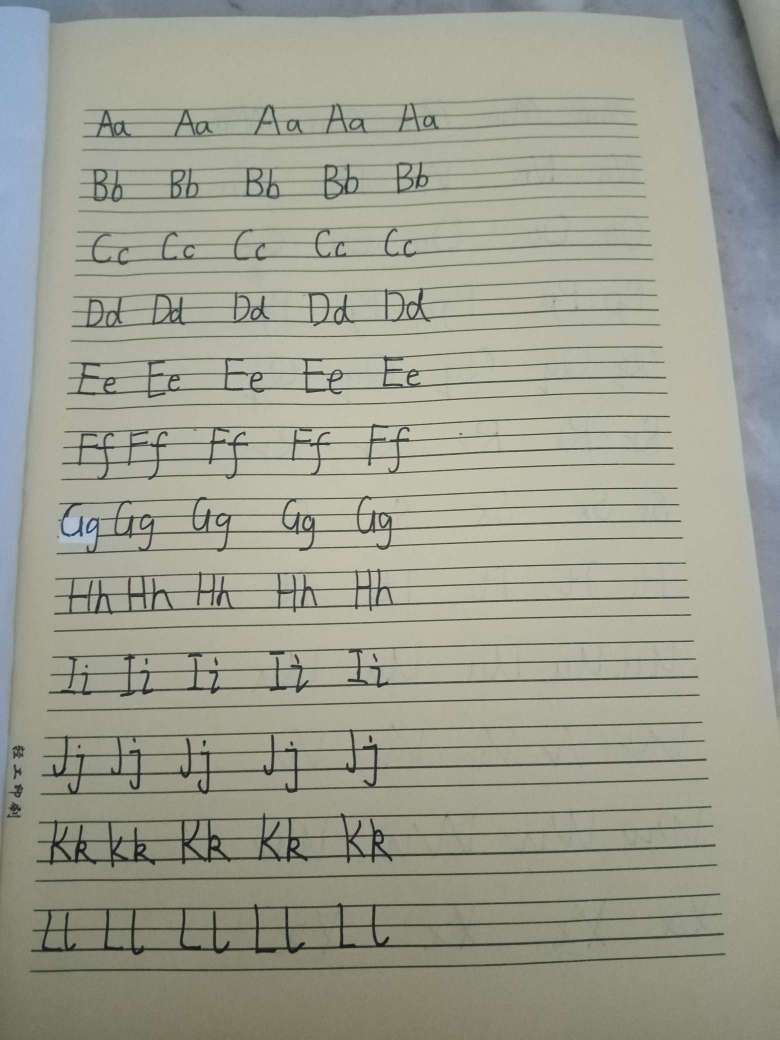 Aa Aa Aa Aa Aa
Bb Bb Bb Bb Bb
Cc Cc Cc Cc Cc
Dd Dd Dd Dd Dd
Ee Ee Ee Ee Ee
Ff Ff Ff Ff Ff
Gg Gg Gg Gg Gg
Hh Hh Hh Hh Hh
Ii Ii Ii Ii Ii
Jj Jj Jj Jj Jj
轻工印刷
Kk Kk Kk Kk Kk
Ll Ll Ll Ll Ll